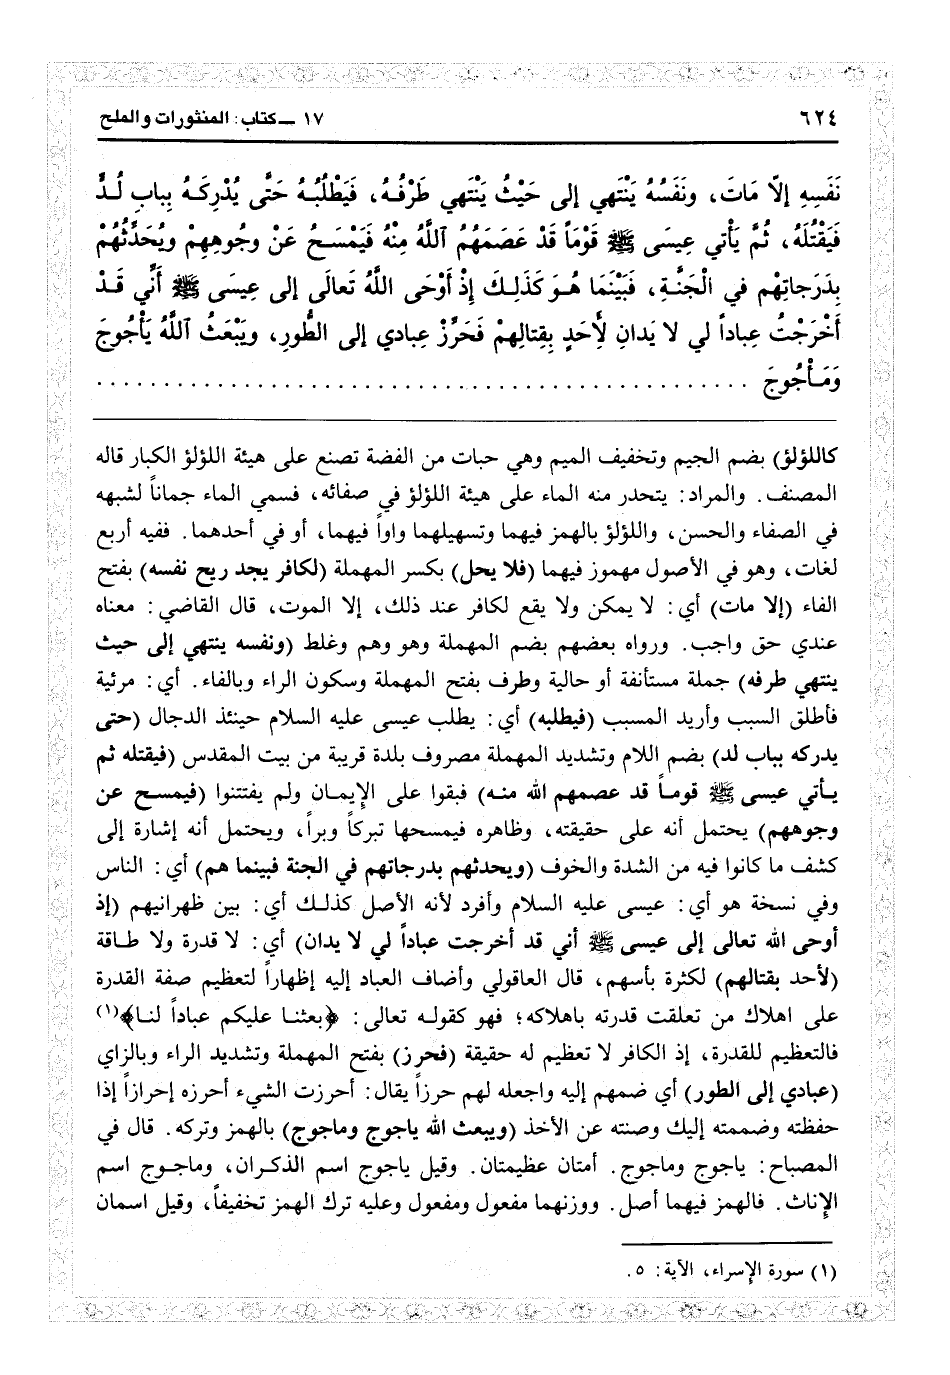 ٦٢٤
١٧ ــ كتاب: المنثورات والملح
نَفَسِهِ إلَّا مَاتَ، ونَفَسُهُ يَنْتَهي إلى حَيْثُ يَنْتَهي طَرْفُهُ، فَيَطْلُبُهُ حَتَّى يُدْرِكَهُ بِبابِ لُدٍّ
فَيَقْتُلَهُ، ثُمَّ يَأْتي عِيسَى ﷺ قَوْماً قَدْ عَصَمَهُمُ اللَّهُ مِنْهُ فَيَمْسَحُ عَنْ وجُوهِهِمْ ويُحَدِّثُهُمْ
بِدَرَجاتِهْم في الْجَنَّةِ، فَبَيْنَمَا هُوَ كَذَلِكَ إذْ أَوْحَى اللَّهُ تَعالَى إلى عِيسَى ﷺ أَنِّي قَدْ
أَخْرَجْتُ عِباداً لي لا يَدانِ لأَِحَدٍ بِقِتالِهِمْ فَحَرِّزْ عِبادي إلى الطُّورِ، ويَبْعَثُ اللَّهُ يَأْجُوجَ
وَمَأْجُوجَ . . . . . . . . . . . . . . . . . . . . . . . . . . . . . . . . . . . . . . . . . . . . . . . . .
كاللؤلؤ) بضم الجيم وتخفيف الميم وهي حبات من الفضة تصنع على هيئة اللؤلؤ الكبار قاله
المصنف. والمراد: يتحدر منه الماء على هيئة اللؤلؤ في صفائه، فسمي الماء جماناً لشبهه
في الصفاء والحسن، واللؤلؤ بالهمز فيهما وتسهيلهما واواً فيهما، أو في أحدهما. ففيه أربع
لغات، وهو في الأصول مهموز فيهما (فلا يحل) بكسر المهملة (لكافر يجد ريح نفسه) بفتح
الفاء (إلا مات) أي: لا يمكن ولا يقع لكافر عند ذلك، إلا الموت، قال القاضي: معناه
عندي حق واجب. ورواه بعضهم بضم المهملة وهو وهم وغلط (ونفسه ينتهي إلى حيث
ينتهي طرفه) جملة مستأنفة أو حالية وطرف بفتح المهملة وسكون الراء وبالفاء. أي: مرئية
فأطلق السبب وأريد المسبب (فيطلبه) أي: يطلب عيسى عليه السلام حينئذ الدجال (حتى
يدركه بباب لد) بضم اللام وتشديد المهملة مصروف بلدة قريبة من بيت المقدس (فيقتله ثم
يأتي عيسى ﷺ قوماً قد عصمهم الله منه) فبقوا على الإيمان ولم يفتتنوا (فيمسح عن
وجوههم) يحتمل أنه على حقيقته، وظاهره فيمسحها تبركاً وبراً، ويحتمل أنه إشارة إلى
كشف ما كانوا فيه من الشدة والخوف (ويحدثهم بدرجاتهم في الجنة فبينما هم) أي: الناس
وفي نسخة هو أي: عيسى عليه السلام وأفرد لأنه الأصل كذلك أي: بين ظهرانيهم (إذ
أوحى الله تعالى إلى عيسى ﷺ أني قد أخرجت عباداً لي لا يدان) أي: لا قدرة ولا طاقة
(لأحد بقتالهم) لكثرة بأسهم، قال العاقولي وأضاف العباد إليه إظهاراً لتعظيم صفة القدرة
على اهلاك من تعلقت قدرته باهلاكه؛ فهو كقوله تعالى: ﴿بعثنا عليكم عباداً لنا﴾(١)
فالتعظيم للقدرة، إذ الكافر لا تعظيم له حقيقة (فحرز) بفتح المهملة وتشديد الراء وبالزاي
(عبادي إلى الطور) أي ضمهم إليه واجعله لهم حرزاً يقال: أحرزت الشيء أحرزه إحرازاً إذا
حفظته وضممته إليك وصنته عن الأخذ (ويبعث الله ياجوج وماجوج) بالهمز وتركه. قال في
المصباح: ياجوج وماجوج. أمتان عظيمتان. وقيل ياجوج اسم الذكران، وماجوج اسم
الإناث. فالهمز فيهما أصل. ووزنهما مفعول ومفعول وعليه ترك الهمز تخفيفاً، وقيل اسمان
(١) سورة الإسراء، الآية: ٥.